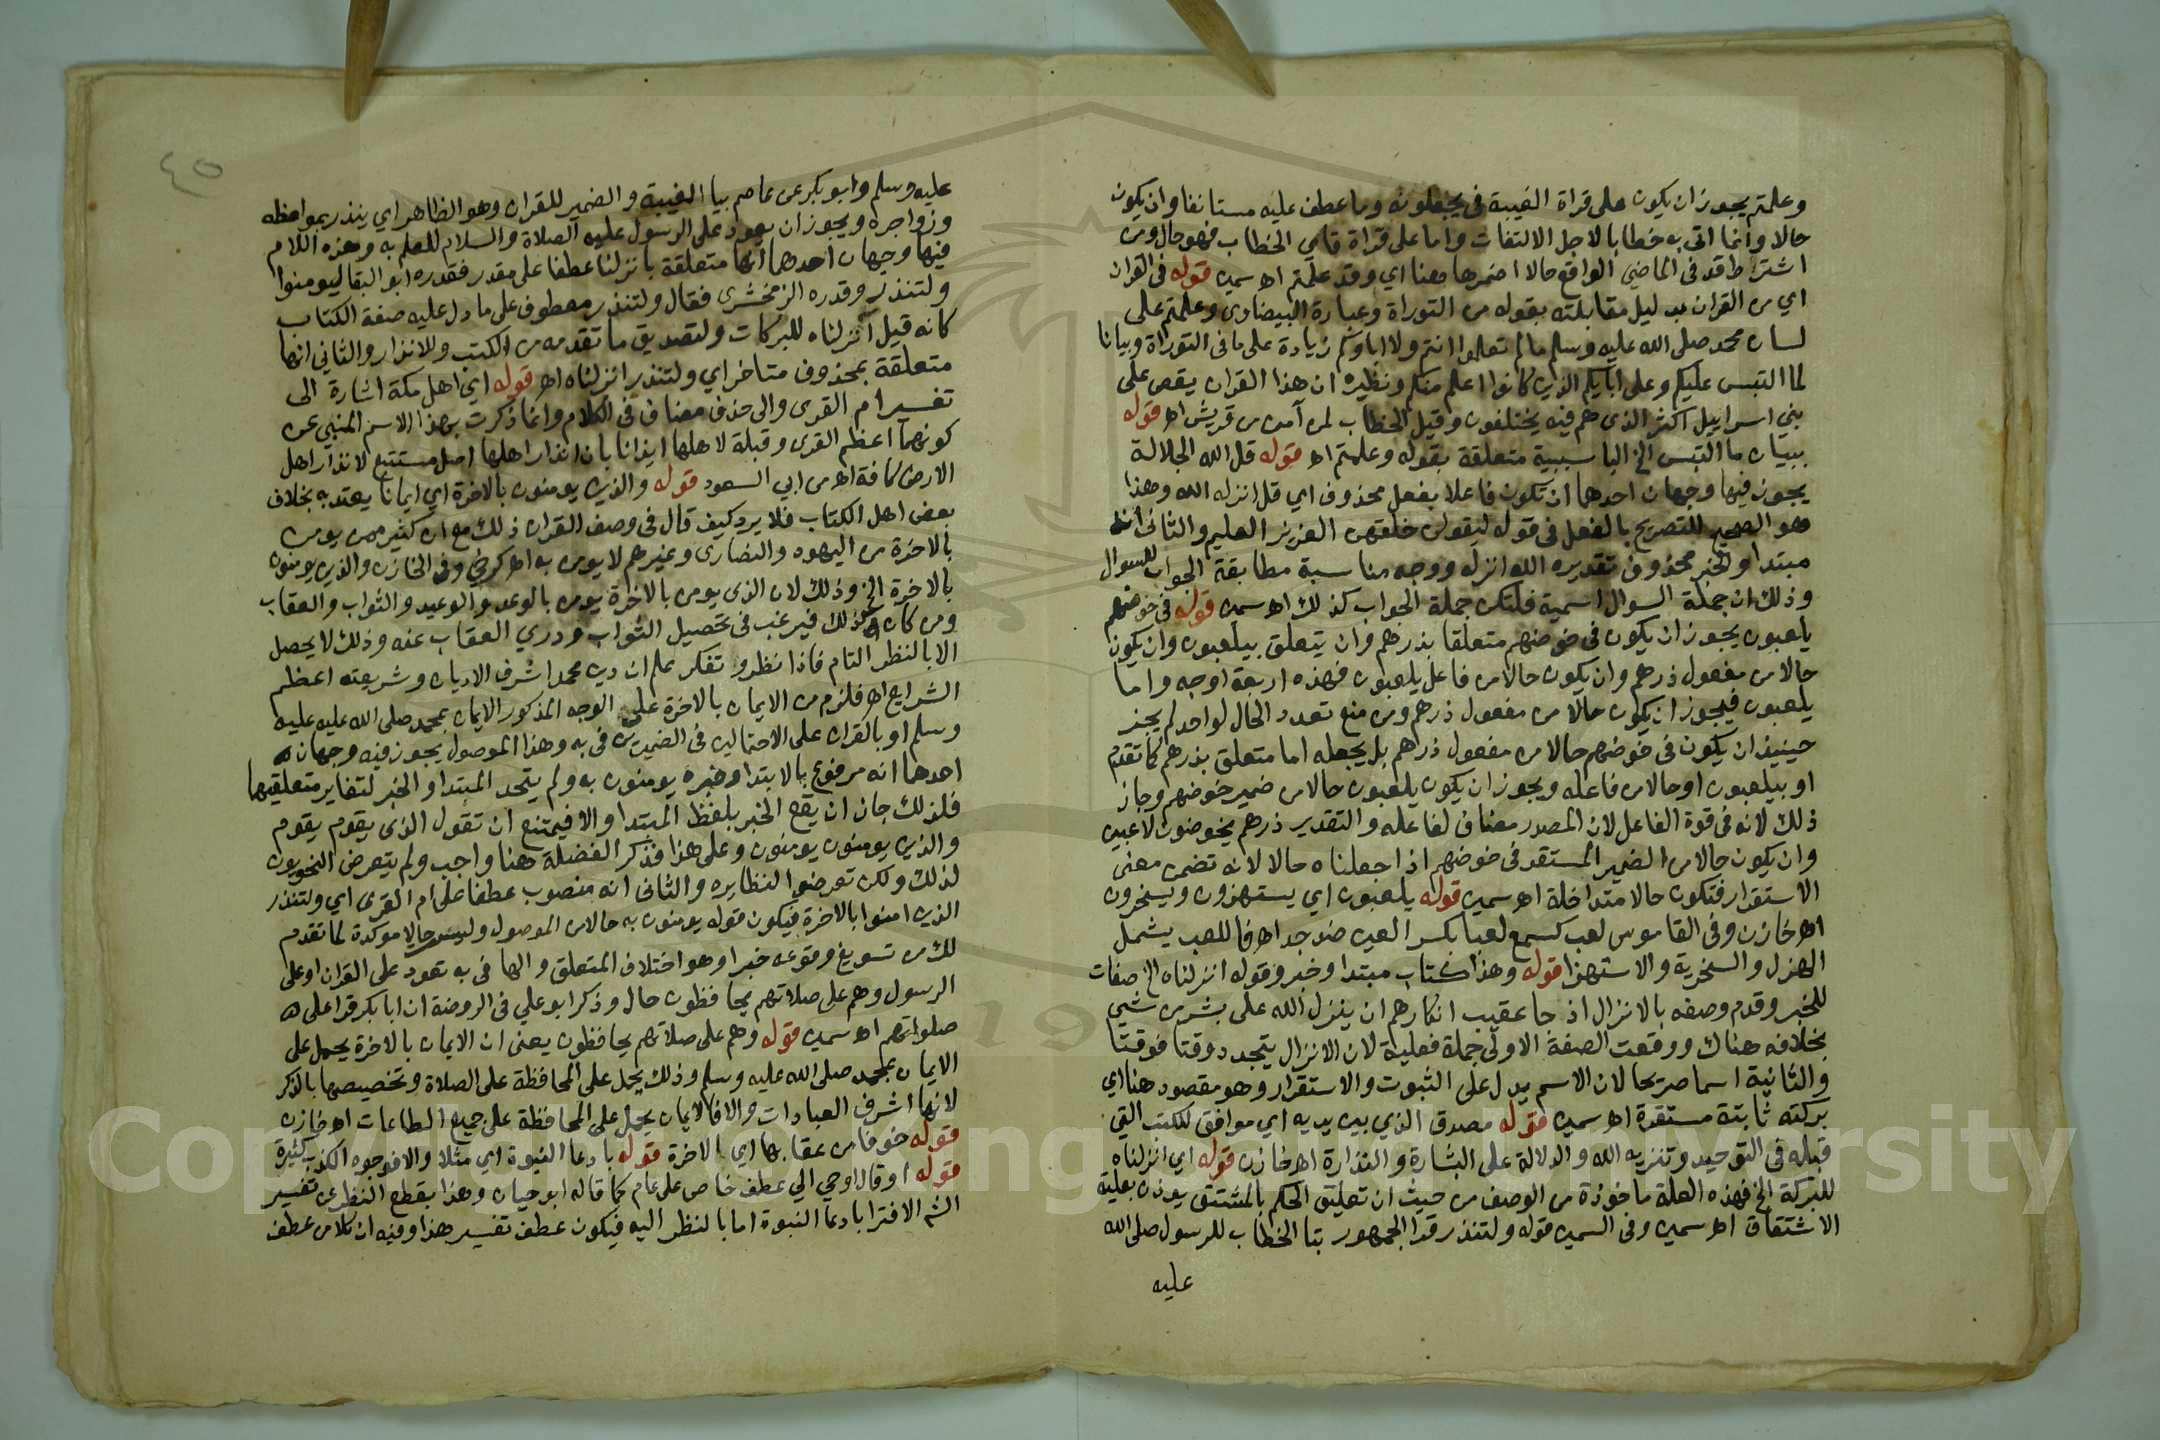 وعلمتم يجوز ان يكون على قراة الغيبة في يجعلونه وما عطف عليه مستانفا وان يكون
حالا وانما اتى به خطابا لاجل الالتفات واما على قراة تاي الخطاب فهو حال ومن
اشترط قد في الماضي الواقع حالا اضمرها هنا اي وقد علمتم اه سمين قوله في القران
اي من القران بدليل مقابلته بقوله من التوراة وعبارة البيضاوي وعلمتم على
لسان محمد صلى الله عليه وسلم ما لم تعلموا انتم ولا اباوكم زيادة على ما في التوراة وبيانا
لما التبس عليكم وعلى ابايكم الذين كانوا اعلم منكم ونظيره ان هذا القران يقص على
بني اسراييل اكثر الذي هم فيه يختلفون وقيل الخطاب لمن آمن من قريش اه قوله
ببيان ما التبس الخ البا سببية متعلقة بقوله وعلمتم اه قوله قل الله الجلالة
يجوز فيها وجهان احدهما ان تكون فاعلا بفعل محذوف اي قل انزله الله وهذا
هو الصحيح للتصريح بالفعل في قوله ليقولن خلقهن العزيز العليم والثاني انه
مبتدا والخبر محذوف تقديره الله انزله ووجه مناسبة مطابقة الجواب للسوال
وذلك ان جملة السوال اسمية فلتكن جملة الجواب كذلك اه سمين قوله في خوضهم
يلعبون يجوز ان يكون في خوضهم متعلقا بذرهم وان يتعلق بيلعبون وان يكون
حالا من مفعول ذرهم وان يكون حالا من فاعل يلعبون فهذه اربعة اوجه واما
يلعبون فيجوز ان يكون حالا من مفعول ذرهم ومن منع تعدد الحال لواحد لم يجز
حينيذ ان يكون في خوضهم حالا من مفعول ذرهم بل يجعله اما متعلق بذرهم كما تقدم
او بيلعبون او حالا من فاعله ويجوز ان يكون يلعبون حالا من ضمير خوضهم وجاز
ذلك لانه في قوة الفاعل لان المصدر مضاف لفاعله والتقدير ذرهم يخوضون لاعبين
وان يكون حالا من الضمير المستقر في خوضهم اذا جعلناه حالا لانه تضمن معنى
الاستقرار فتكون حالا متداخلة اه سمين قوله يلعبون اي يستهزون ويسخرون
اه خازن وفي القاموس لعب كسمع لعبا بكسر العين ضد جد اه فاللعب يشمل
الهزل والسخرية والاستهزا قوله وهذا كتاب مبتدا وخبر وقوله انزلناه الخ صفات
للخبر وقدم وصفه بالانزال اذ جا عقيب انكارهم ان ينزل الله على بشر من شيي
بخلافه هناك ووقعت الصفة الاولى جملة فعلية لان الانزال يتجدد وقتا فوقتا
والثانية اسما صريحا لان الاسم يدل على الثبوت والاستقرار وهو مقصود هنا اي
بركته ثابتة مستقرة اه سمين قوله مصدق الذي بين يديه اي موافق للكتب التي
قبله في التوحيد وتنزيه الله والدلالة على البشارة والنذارة اه خازن قوله اي انزلناه
للبركة الخ فهذه العلة ماخوذة من الوصف من حيث ان تعليق الحكم بالمشتق يوذن بعلية
الاشتقاق اه سمين وفي السمين قوله ولتنذر قرا الجمهور بتا الخطاب للرسول صلى الله
عليه
٤٥
عليه وسلم وابو بكر عن عاصم بيا الغيبة والضمير للقران وهو الظاهر اي ينذر بمواعظه
وزواجره ويجوز ان يعود على الرسول عليه الصلاة والسلام للعلم به وهذه اللام
فيها وجهان احدهما انها متعلقة بانزلنا عطفا على مقدر فقدره ابو البقا ليومنوا
ولتنذر وقدره الزمخشري فقال ولتنذر معطوف على ما دل عليه صفة الكتاب
كانه قيل انزلناه للبركات ولتصديق ما تقدمه من الكتب وللانذار والثاني انها
متعلقة بمحذوف متاخر اي ولتنذر انزلناه اه قوله اي اهل مكة اشارة الى
تفسير ام القرى والى حذف مضاف في الكلام وانما ذكرت بهذا الاسم المنبي عن
كونها اعظم القرى وقبلة لاهلها ايذانا بان انذار اهلها اصل مستتبع لانذار اهل
الارض كافة اه من ابي السعود قوله والذين يومنون بالاخرة اي ايمانا يعتد به بخلاف
بعض اهل الكتاب فلا يرد كيف قال في وصف القران ذلك مع ان كثير ممن يومن
بالاخرة من اليهود والنصارى وغيرهم لا يومن به اه كرخي وفي الخازن والذين يومنون
بالاخرة الخ وذلك لان الذي يومن بالاخرة يومن بالوعد والوعيد والثواب والعقاب
ومن كان كذلك فيرغب في تحصيل الثواب ودري العقاب عنه وذلك لا يحصل
الا بالنظر التام فاذا نظر وتفكر علم ان دين محمد اشرف الاديان وشريعته اعظم
الشرايع اه فلزم من الايمان بالاخرة على الوجه المذكور الايمان بمحمد صلى الله عليه عليه
وسلم او بالقران على الاحتمالين في الضمير في به وهذا الموصول يجوز فيه وجهان
احدهما انه مرفوع بالابتدا وخبره يومنون به ولم يتحد المبتدا والخبر لتغاير متعلقيهما
فلذلك جاز ان يقع الخبر بلفظ المبتدا والا فيمتنع ان تقول الذي يقوم يقوم
والذين يومنون يومنون وعلى هذا فذكر الفضلة هنا واجب ولم يتعرض النحويون
لذلك ولكن تعرضوا لنظايره والثاني انه منصوب عطفا على ام القرى اي ولتنذر
الذين امنوا بالاخرة فيكون قوله يومنون به حالا من الموصول وليس حالا موكدة لما تقدم
لك من تسويغ وقوعه خبرا وهو اختلاف المتعلق والها في به تعود على القران او على
الرسول وهم على صلاتهم يحافظون حال وذكر ابو علي في الروضة ان ابا بكر قرا على
صلواتهم اه سمين قوله وهم على صلاتهم يحافظون يعني ان الايمان بالاخرة يحمل على
الايمان بمحمد صلى الله عليه وسلم وذلك يحمل على المحافظة على الصلاة وتخصيصها بالذكر
لانها اشرف العبادات والا فالايمان يحمل على المحافظة على جميع الطاعات اه خازن
قوله خوفا من عقابها اي الاخرة قوله بادعا النبوة اي مثلا والا فوجوه الكذب كثيرة
قوله او قال اوحي الي عطف خاص على عام كما قاله ابو حيان وهذا بقطع النظر عن تفسير
الشم الافترا بادعا النبوة اما بالنظر اليه فيكون عطف تفسير هذا وفيه ان كلا من عطف